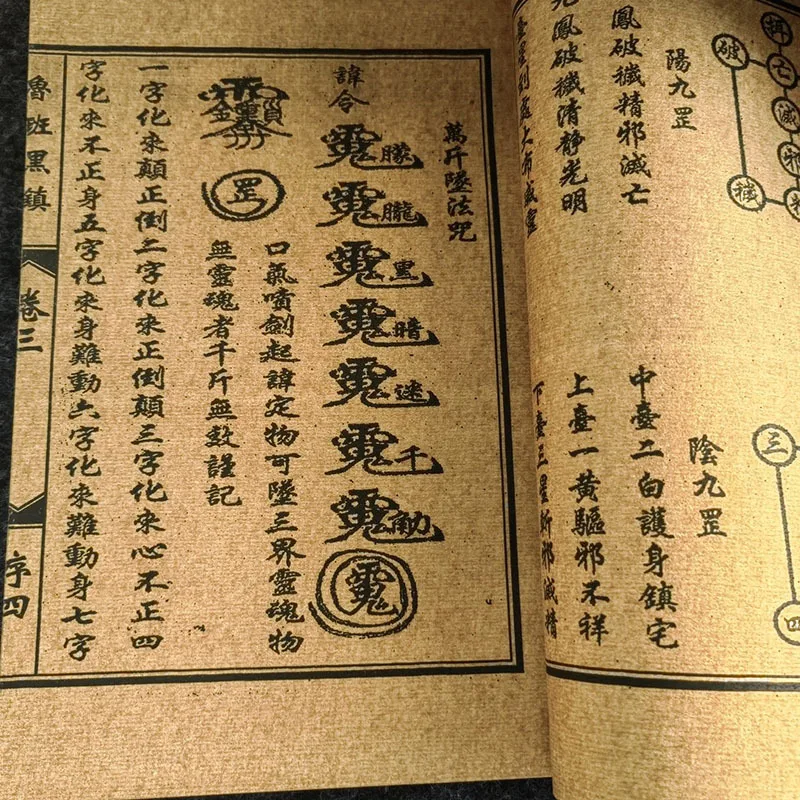 破
亡
滅
邪
穢
陽九罡
鳳破穢精邪滅亡
鳳破穢清靜光明
三
四
陰九罡
中臺二白護身鎮宅
上臺一黃驅邪不祥
下臺三星斬邪滅精
萬斤墜法咒
諱令
朦
朧
黑
暗
迷
千
動
口氣噴劍起諱定物可墜三界靈魂物
無靈魂者千斤無效謹記
罡
一字化來顛正倒二字化來正倒顛三字化來心不正四
字化來不正身五字化來身難動六字化來難動身七字
魯班黑鎮
卷三
序四